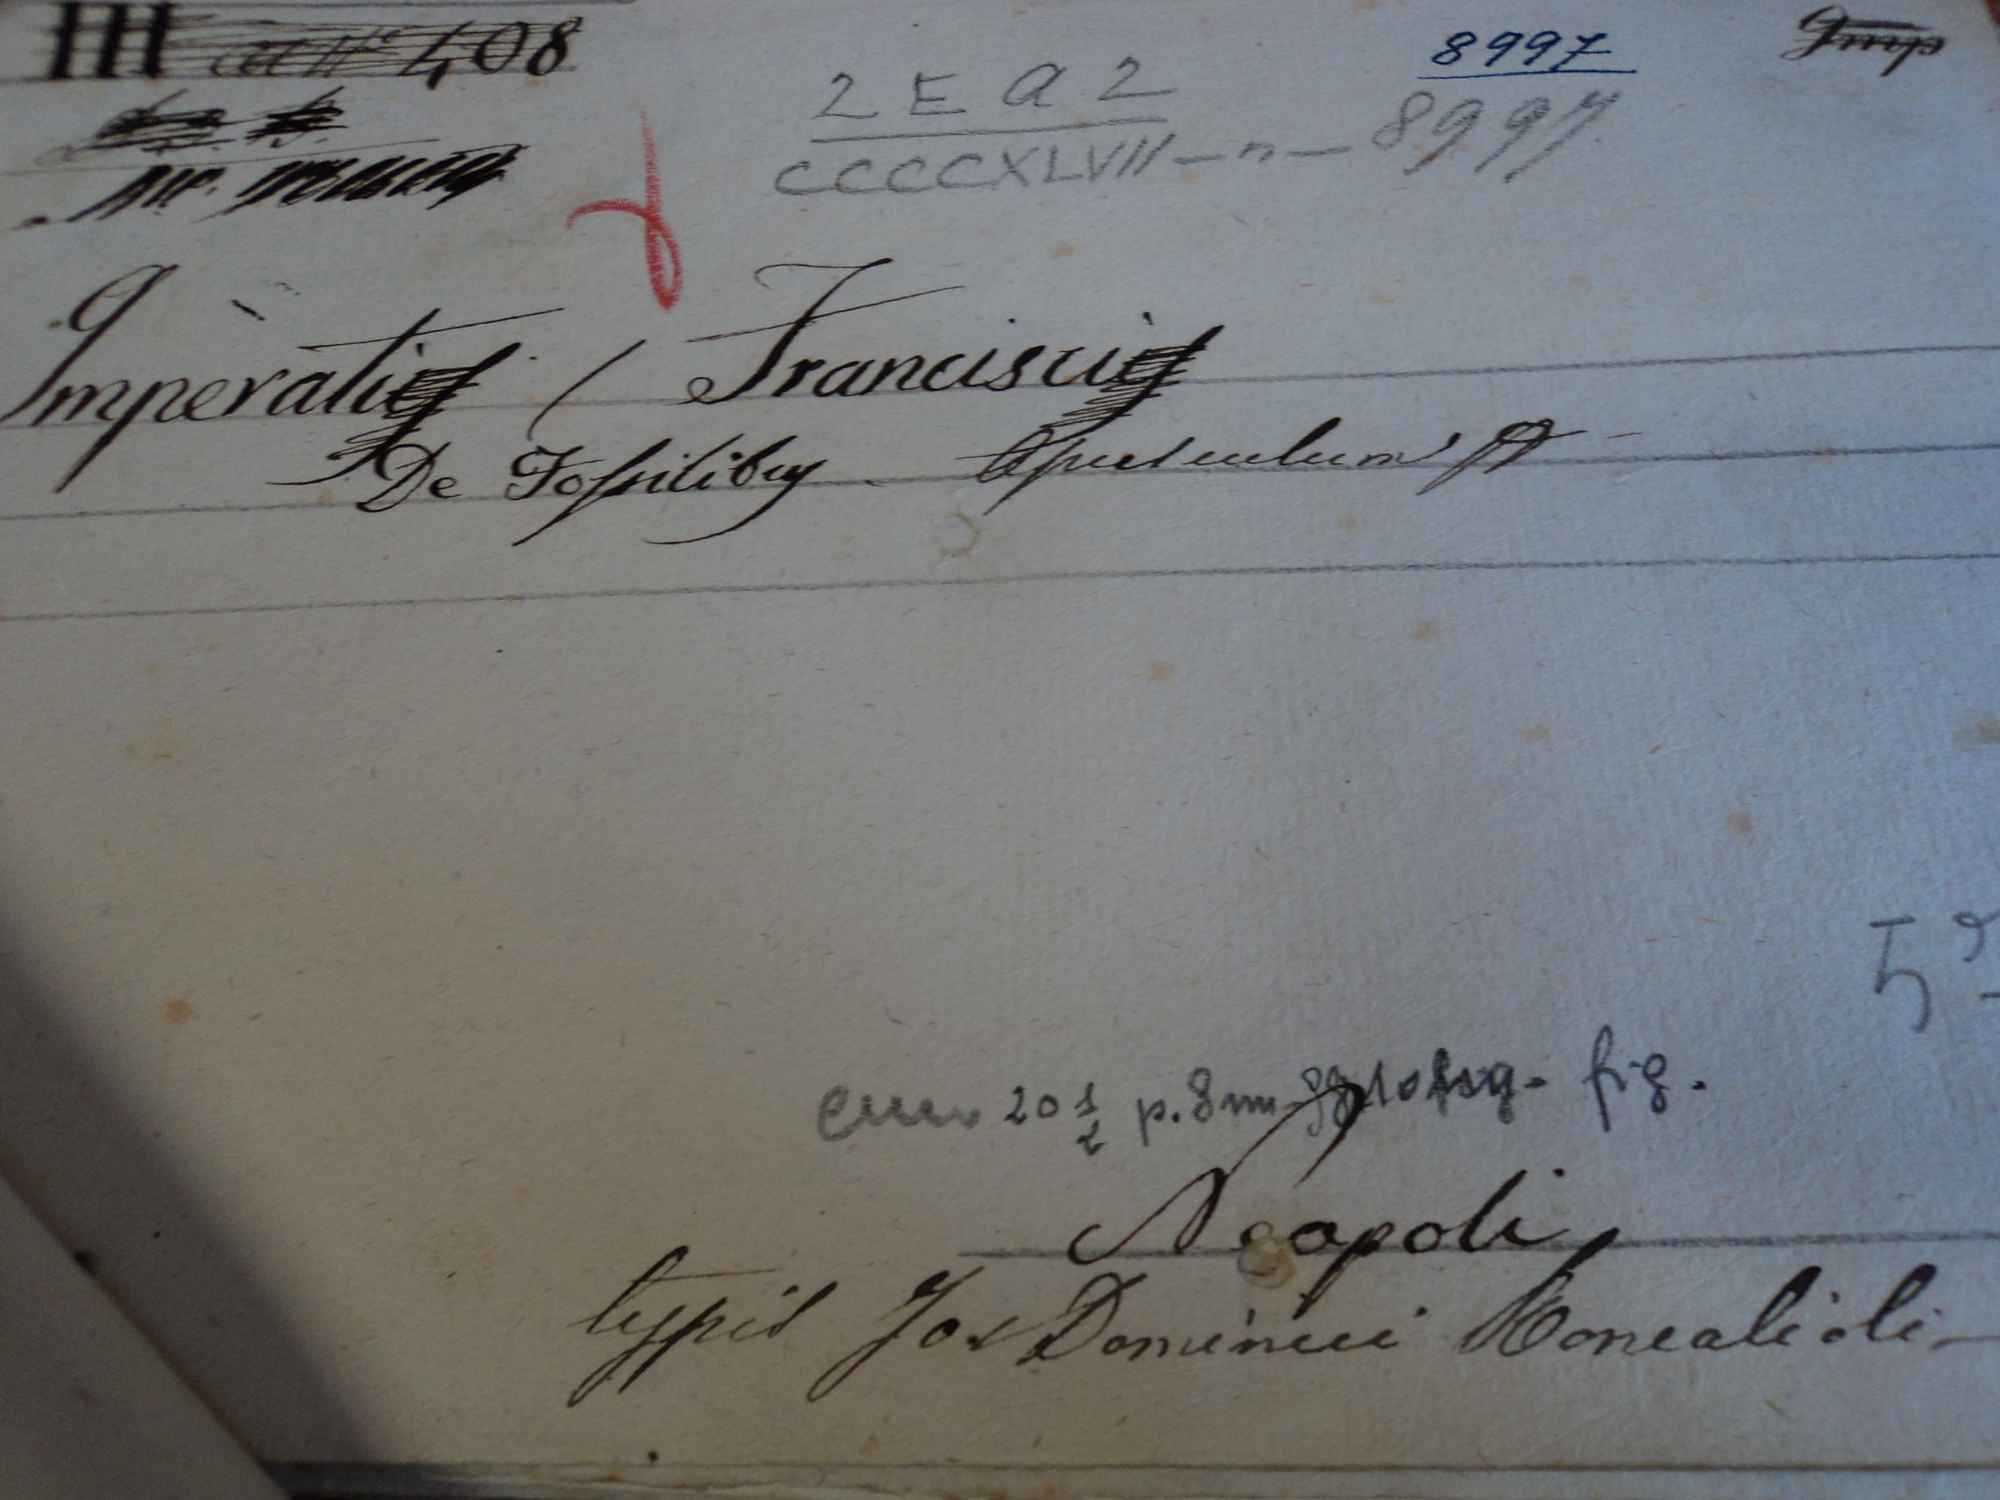 III 408
8997
Imp
2 E a 2
CCCCXLVII - n - 8997
Imperati / Francisci
De Fossilibus Opusculum
cm. 20 1/2 p. 8 fig.
Neapoli
typis Jos Dominici Roncalioli